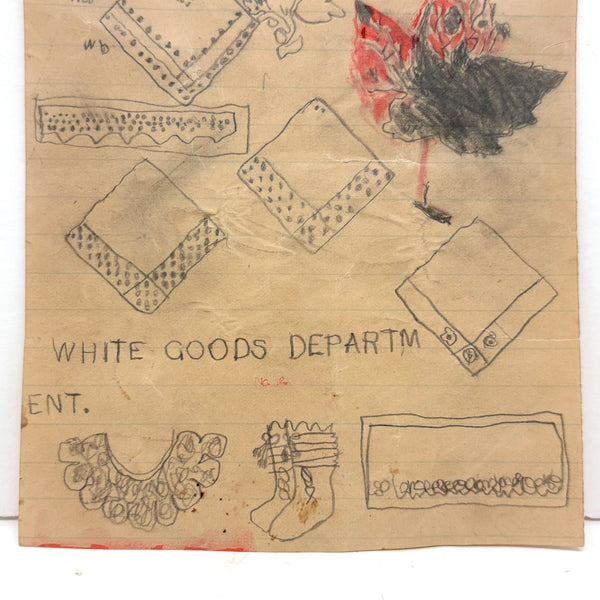 WHITE GOODS DEPARTM
ENT.